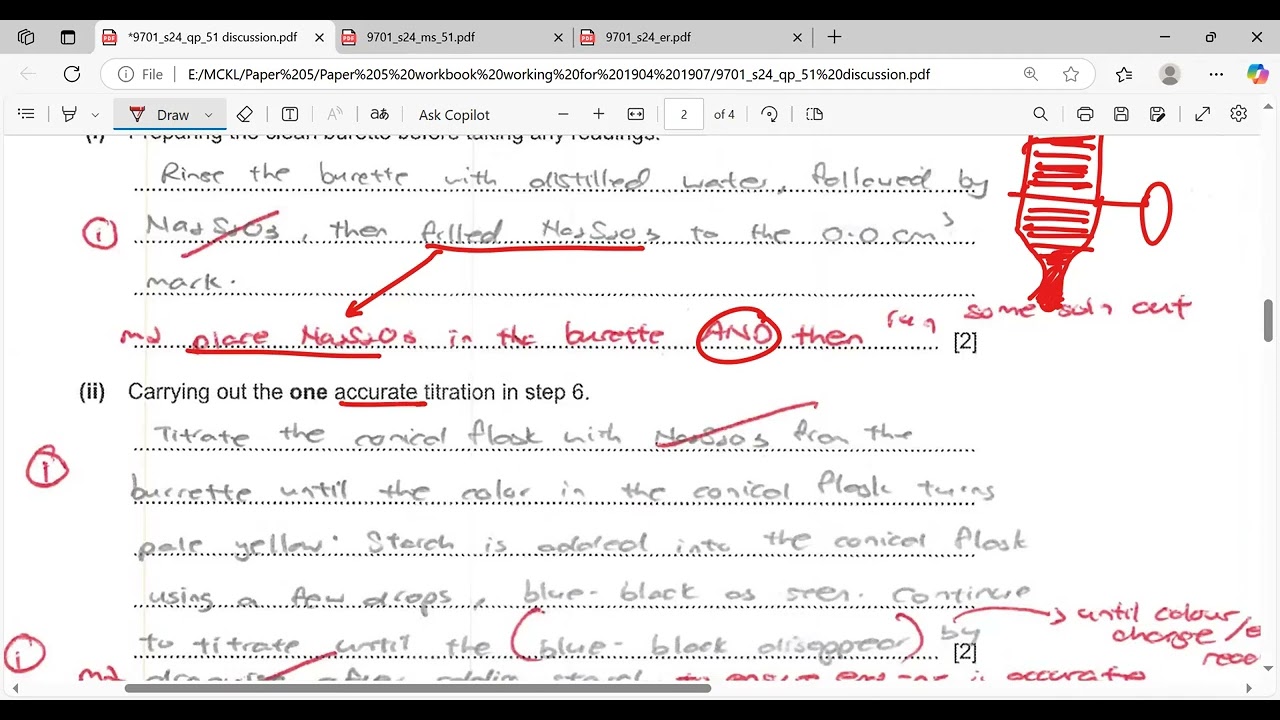 *9701_s24_qp_51 discussion.pdf
9701_s24_ms_51.pdf
9701_s24_er.pdf
File
E:/MCKL/Paper%205/Paper%205%20workbook%20working%20for%201904%201907/9701_s24_qp_51%20discussion.pdf
Draw
Ask Copilot
2
of 4
Rinse the burette with distilled water, followed by
i Na2S2O3, then filled Na2S2O3 to the 0.0 cm3
mark.
some soln out
md place Na2S2O3 in the burette AND then run
[2]
(ii) Carrying out the one accurate titration in step 6.
Titrate the conical flask with Na2S2O3 from the
i burrette until the color in the conical flask turns
pale yellow. Starch is added into the conical flask
using a few drops, blue-black as seen. Continue
to titrate until the (blue-black disappear) by
until colour
change
i
[2]
md after adding starch to ensure is accurate